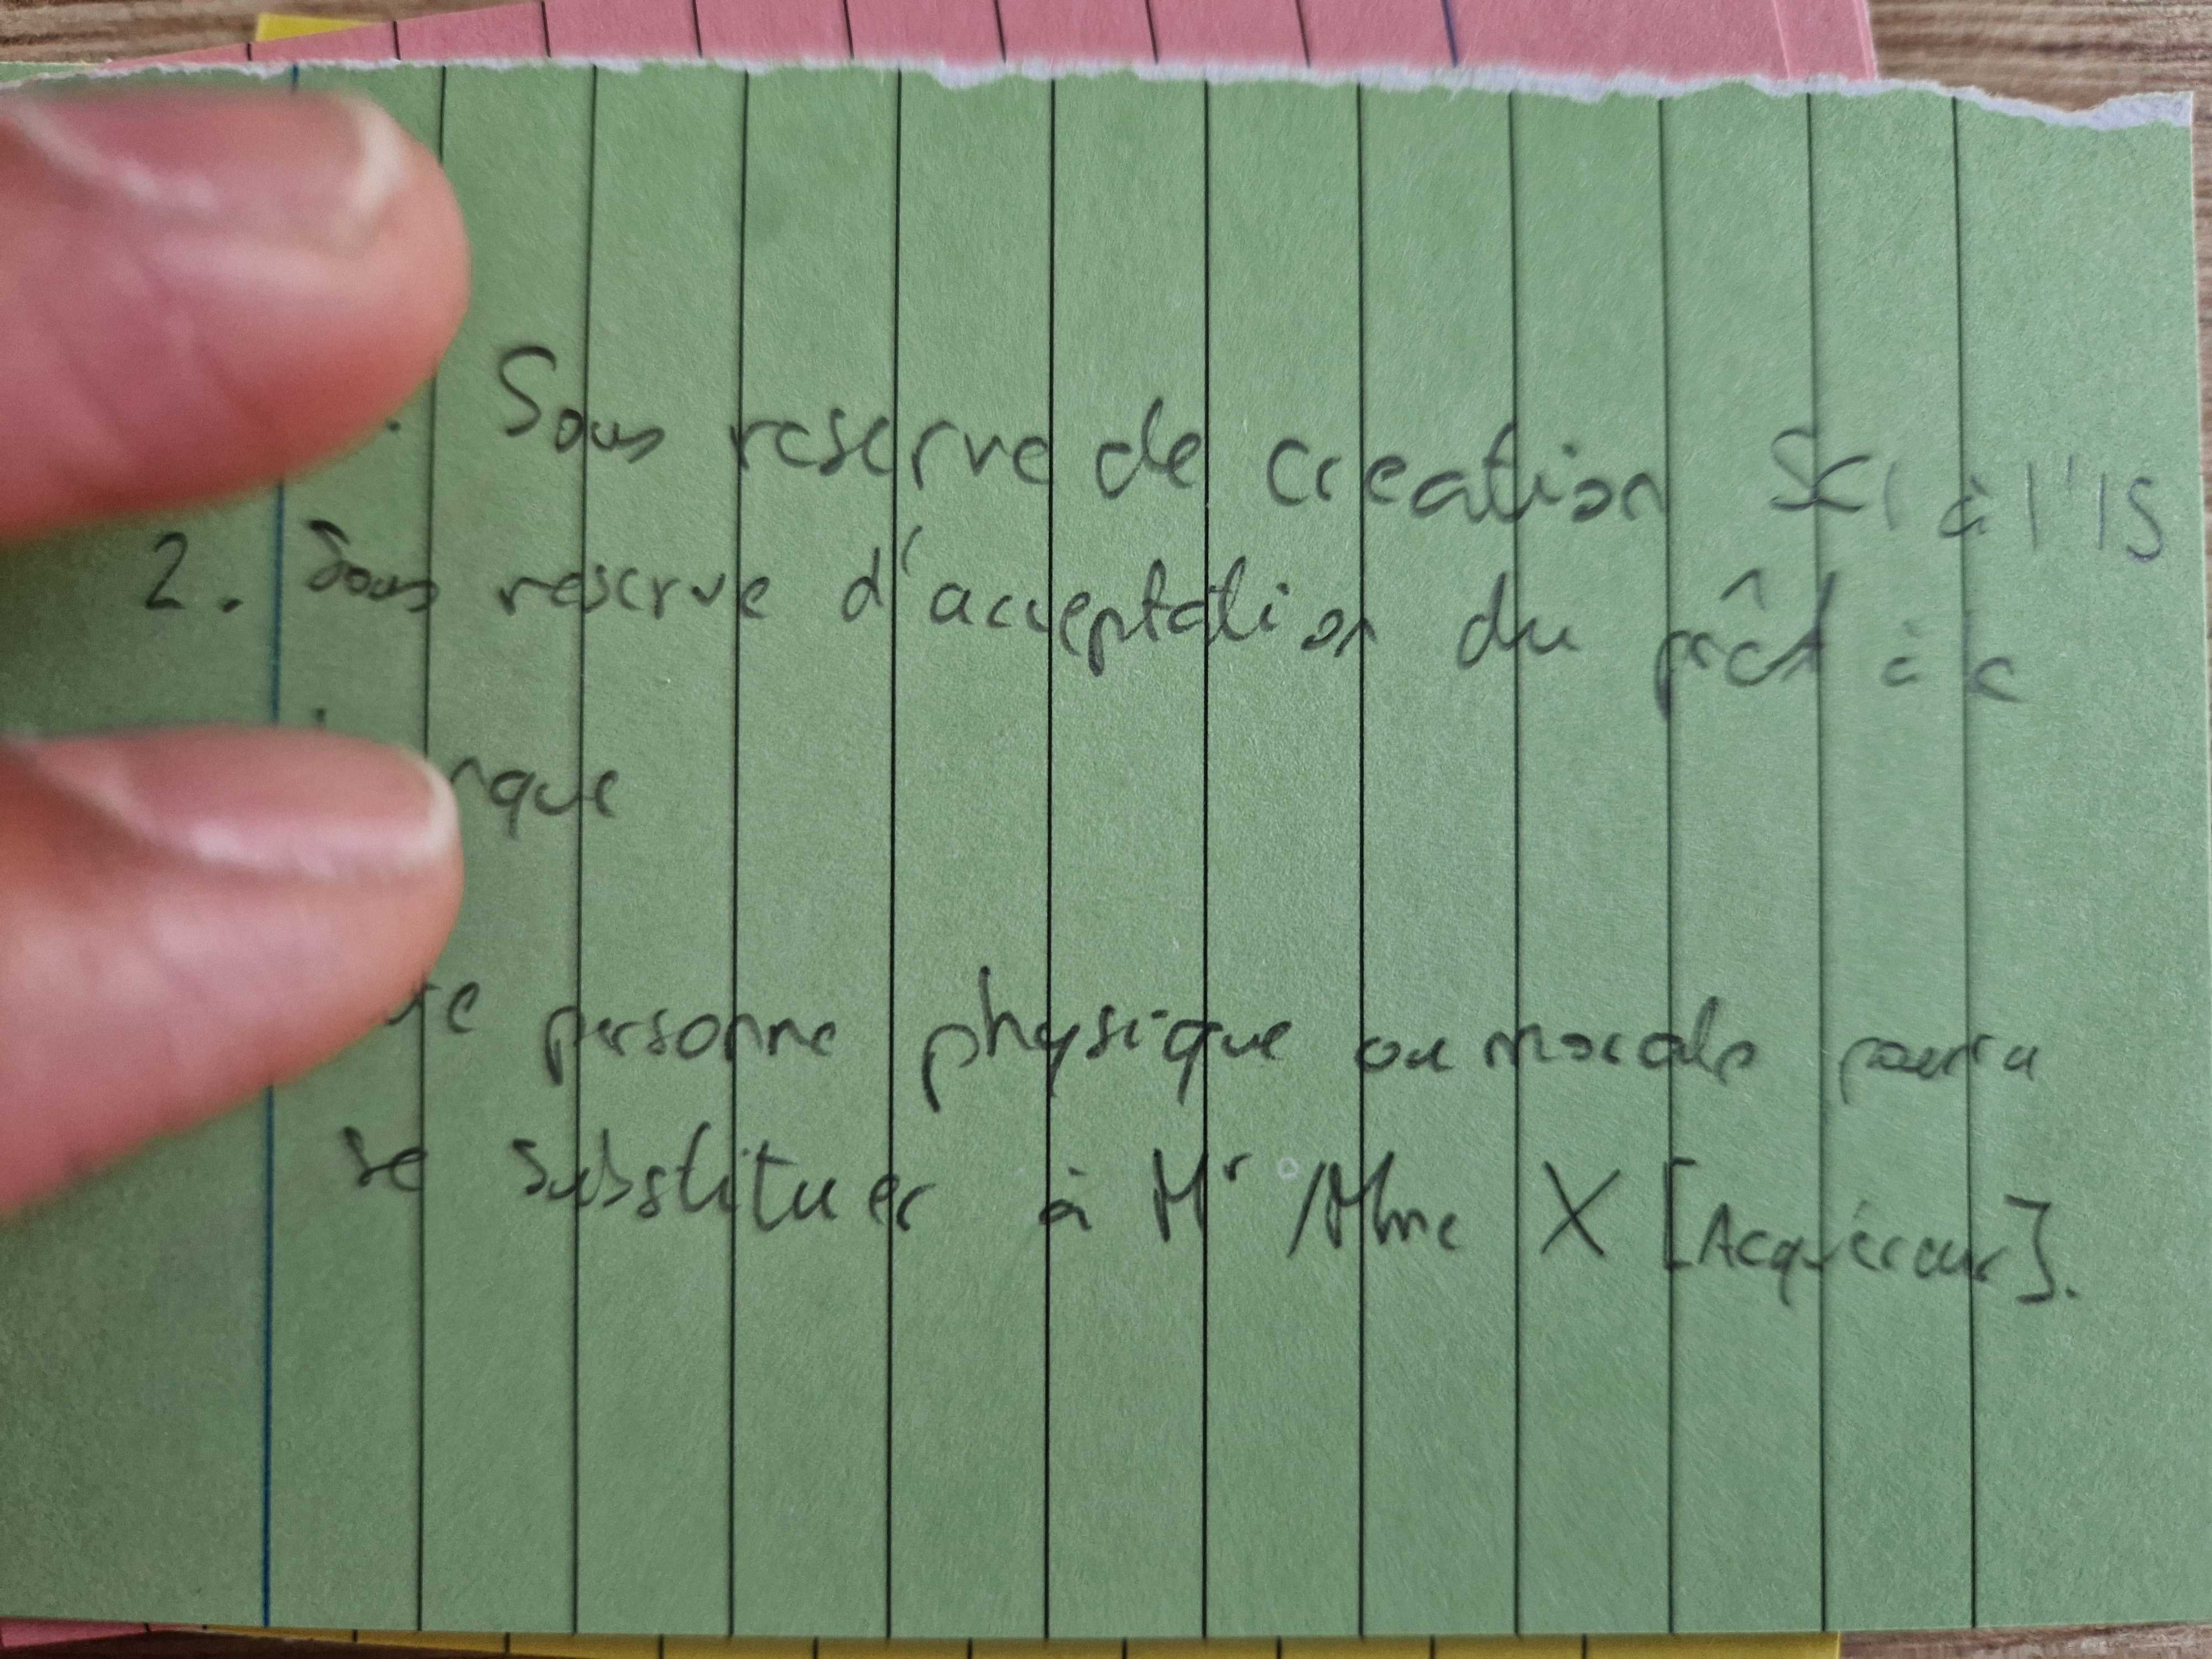 . Sous reserve de creation SCI à l'IS
2. Sous reserve d'acceptation du prêt à la
nque
personne physique ou morale pourra
se substituer à Mr /Mme X [Acquéreur].